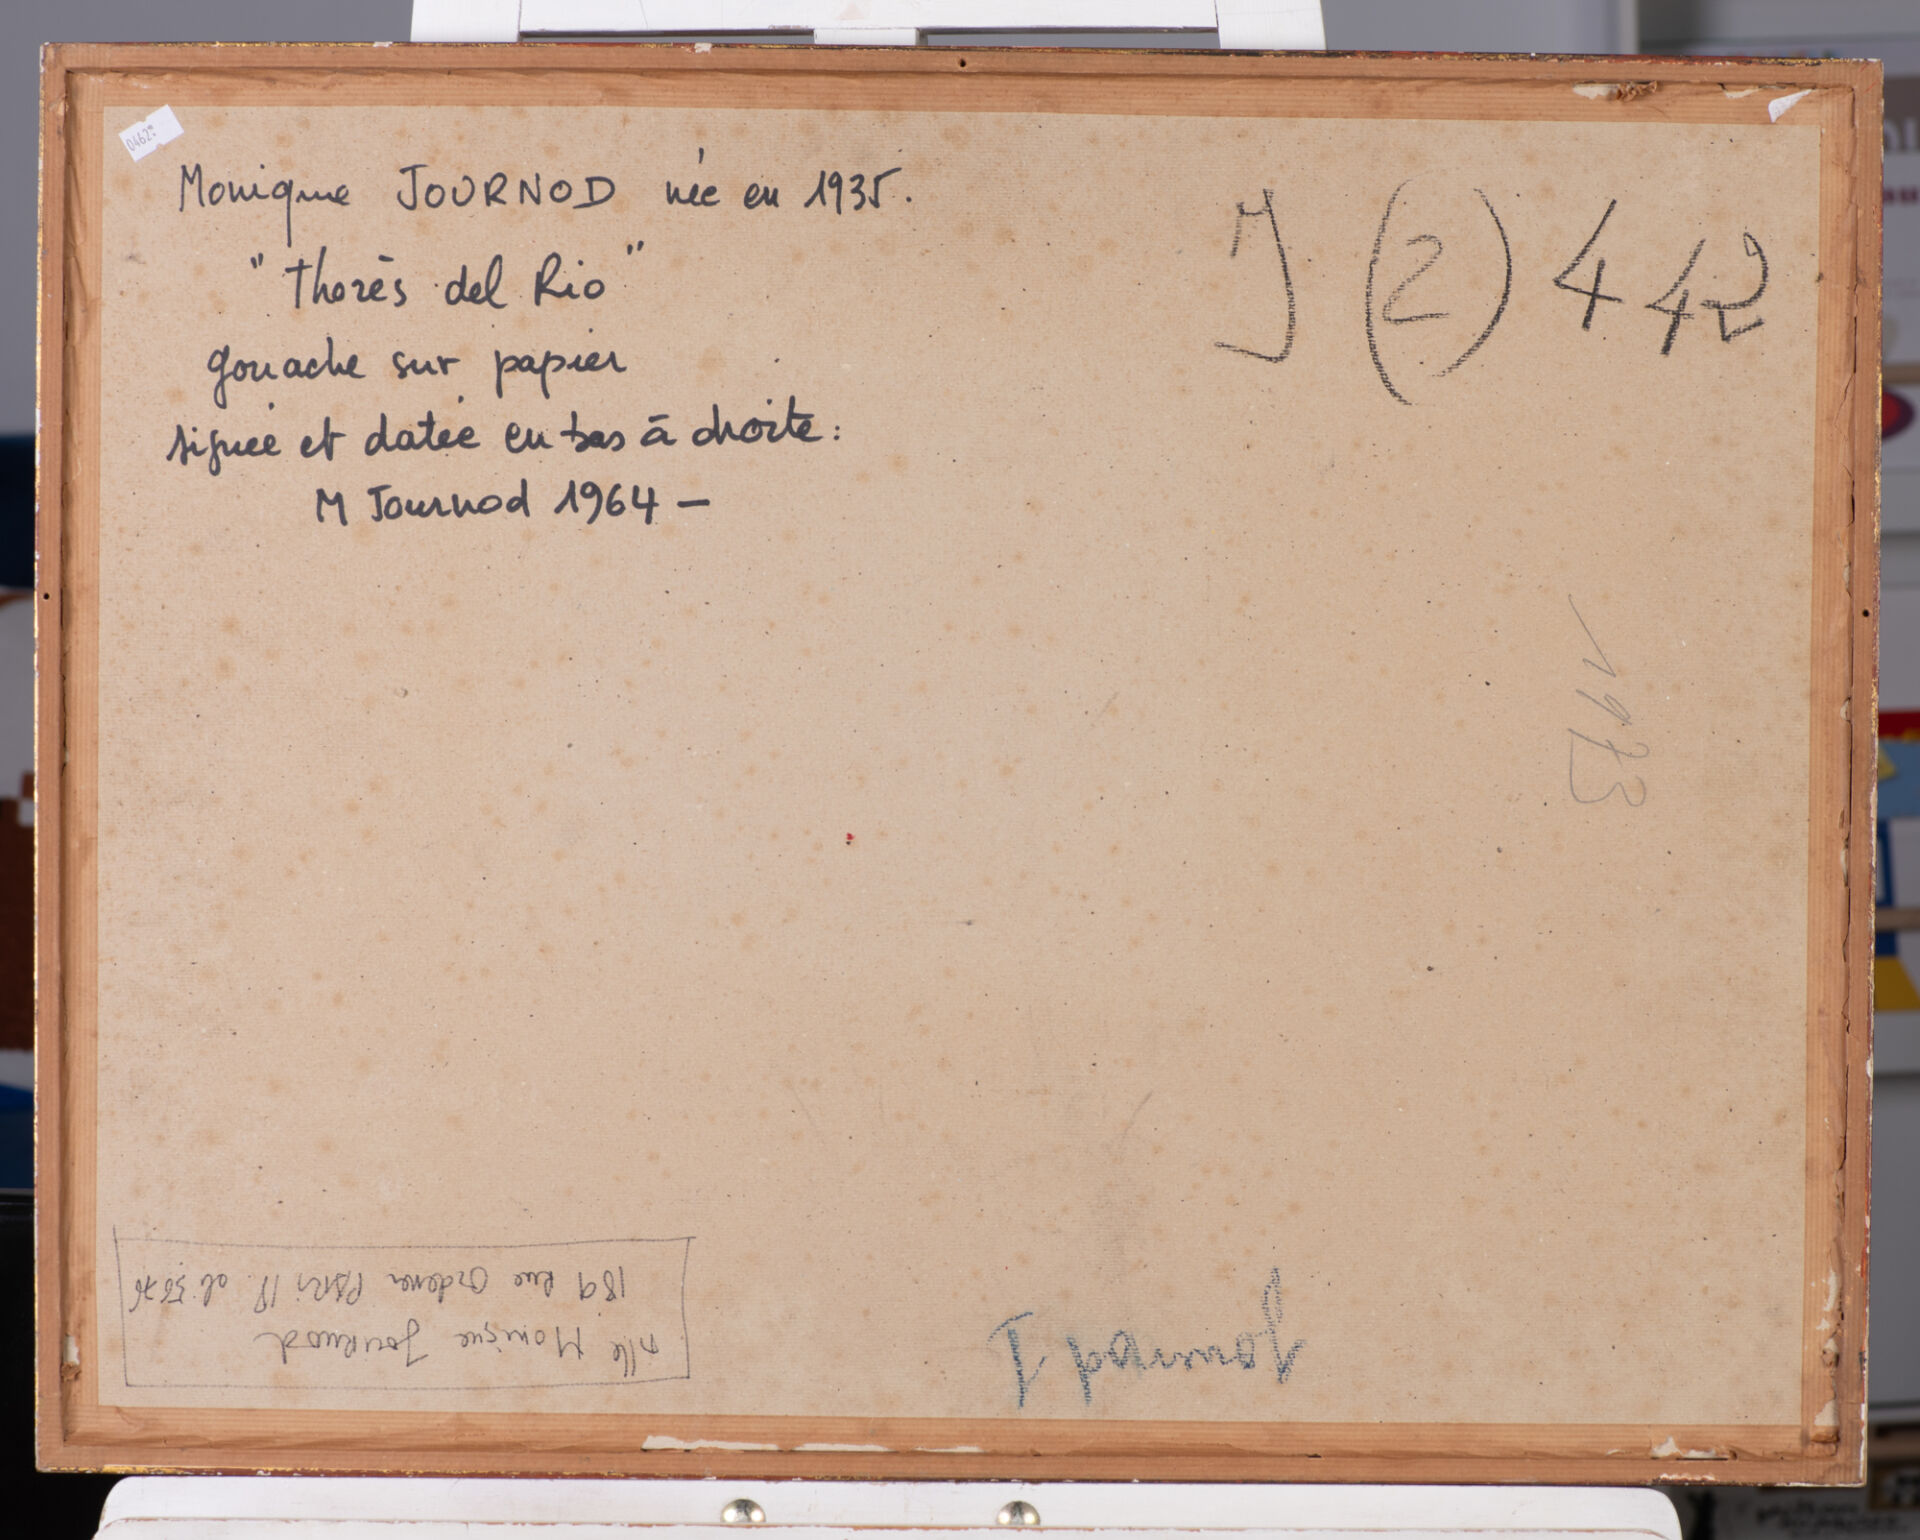 0462
Monique JOURNOD née en 1935.
"Thorès del Rio"
gouache sur papier
signée et datée en bas à droite:
M Journod 1964 —
J (2) 442
1973
Mlle Monique Journod
189 Rue Ordener PARis 18
Journod I